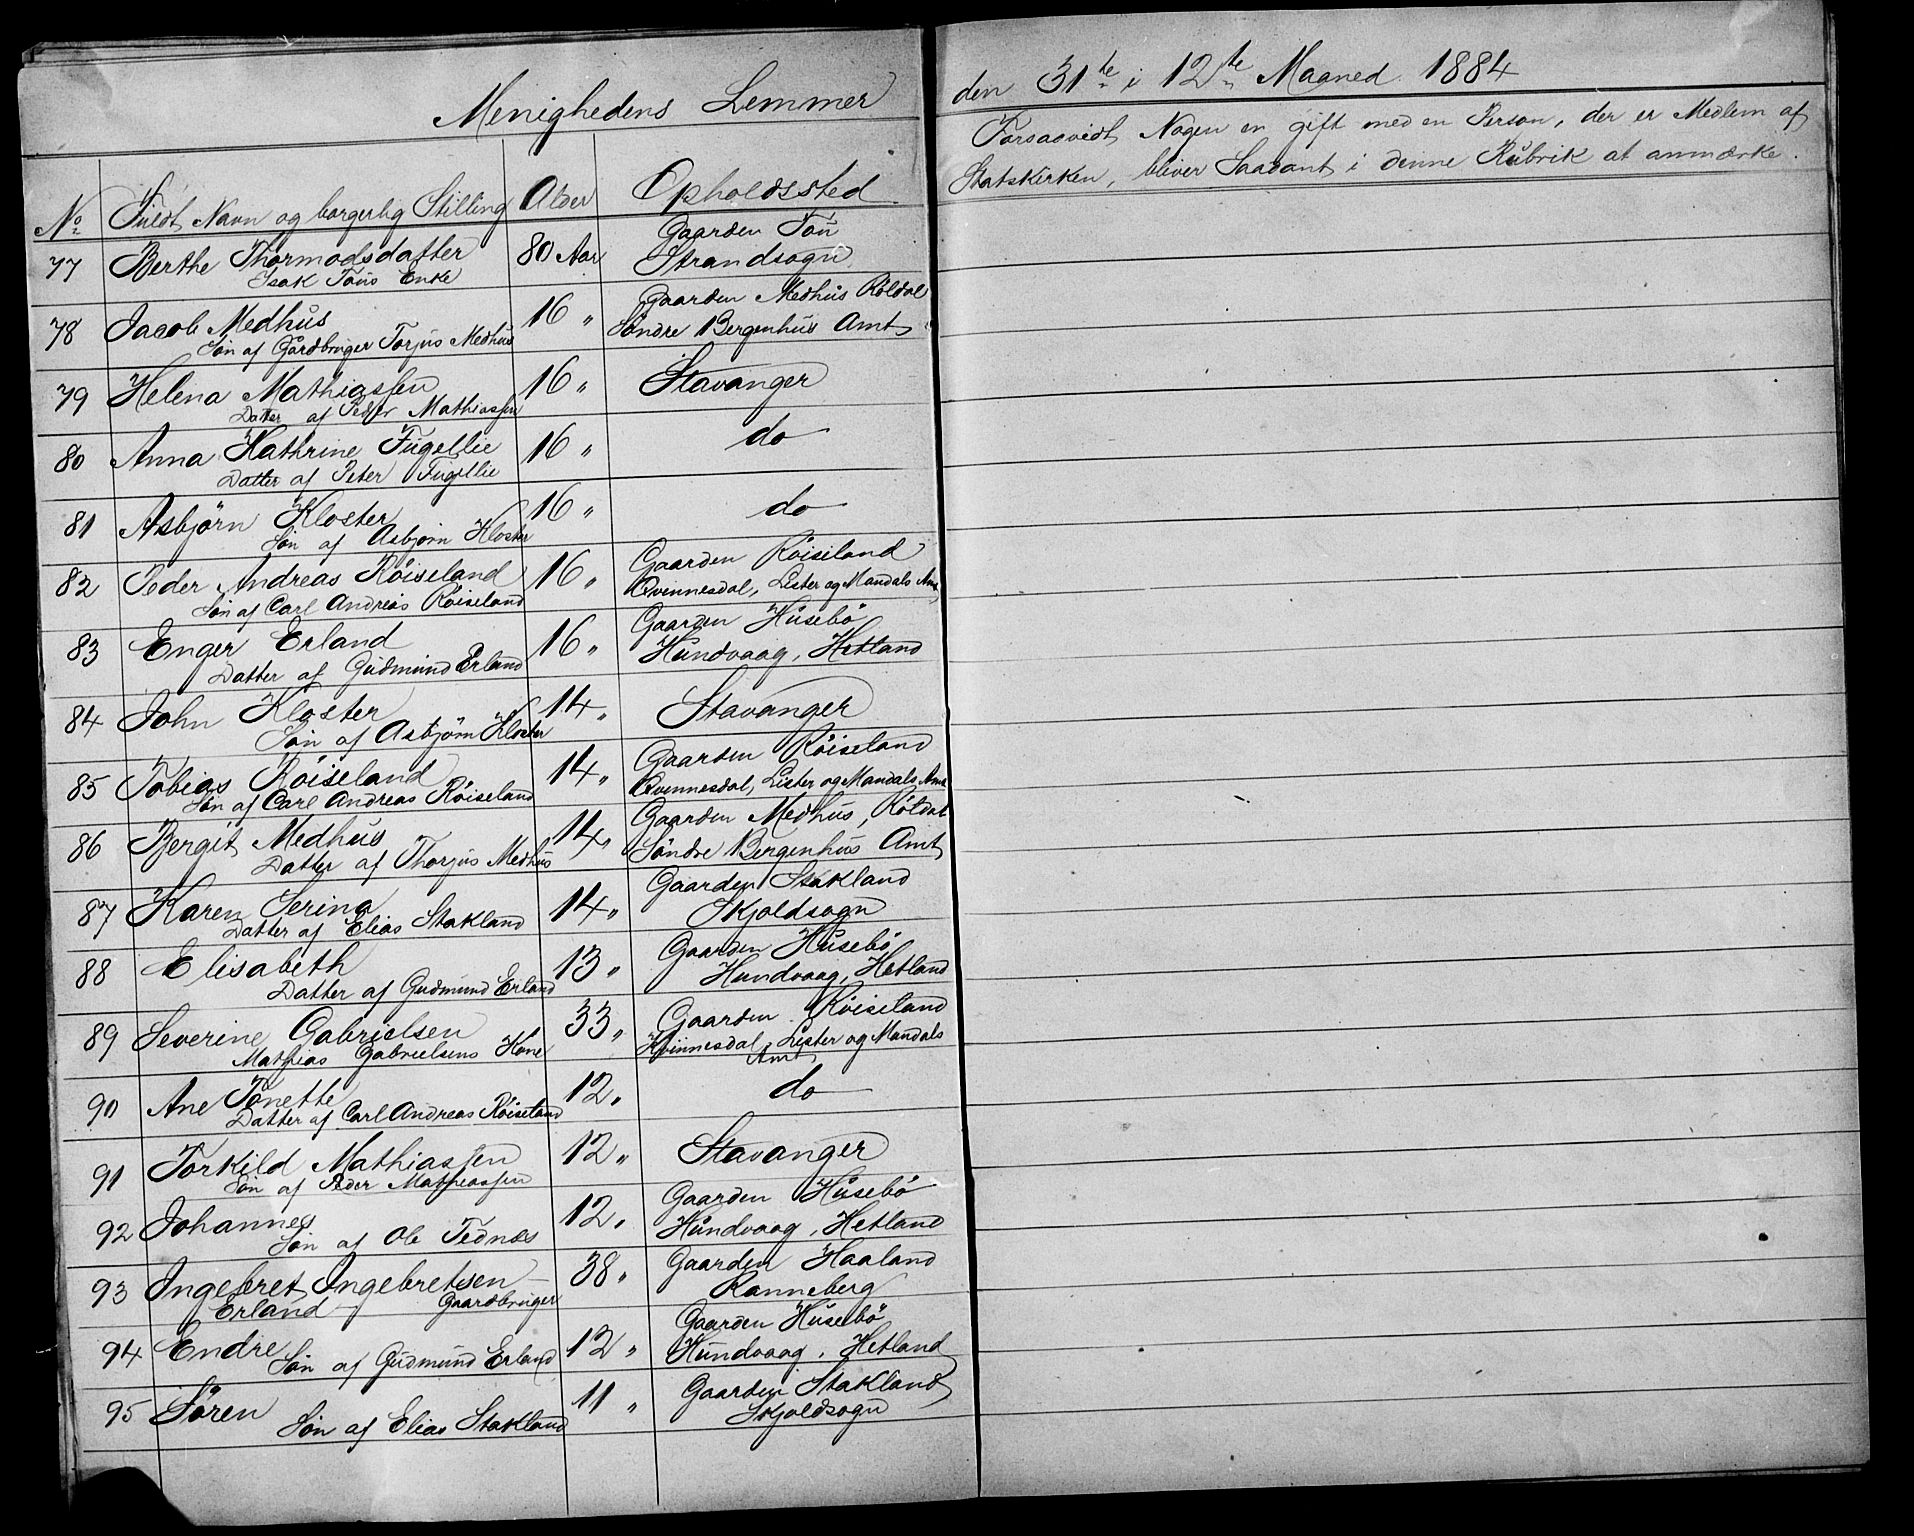 Menighedens Lemmer
No Fuldt Navn og borgerlig Stilling Alder Opholdssted
77 Berthe Thormodsdatter 80 Aar Gaarden Tou
Isak Tous Enke Strandsogn
78 Jacob Medhus 16 " Gaarden Medhus Røldal
Søn af Gårdbruger Torjus Medhus Søndre Bergenhus Amt
79 Helena Mathiassen 16 " Stavanger
Datter af Peder Mathiassen
80 Anna Kathrine Fugellie 16 " do
Datter af Peter Fugellie
81 Asbjörn Kloster 16 " do
Søn af Asbjørn Kloster
82 Peder Andreas Röiseland 16 " Gaarden Röiseland
Søn af Carl Andreas Röiseland Qvinnesdal, Lister og Mandals Amt
83 Enger Erland 16 " Gaarden Husebö
Datter af Gudmund Erland Hundvaag, Hetland
84 John Kloster 14 " Stavanger
Søn af Asbjörn Kloster
85 Tobias Röiseland 14 " Gaarden Röiseland
Søn af Carl Andreas Röiseland Qvinnesdal, Lister og Mandals Amt
86 Bergit Medhus 14 " Gaarden Medhus, Röldal
Datter af Thorjus Medhus Söndre Bergenhus Amt
87 Karen Serina 14 " Gaarden Stakland
Datter af Elias Stakland Skjoldsogn
88 Elisabeth 13 " Gaarden Husebö
Datter af Gudmund Erland Hundvaag, Hetland
89 Severine Gabrielsen 33 " Gaarden Röiseland
Mathias Gabrielsens Kone Kvinnesdal, Lister og Mandals
Amt
90 Ane Tonette 12 " do
Datter af Carl Andreas Röiseland
91 Torkild Mathiassen 12 " Stavanger
Søn af Peder Mathiassen
92 Johannes 12 " Gaarden Husebö
Søn af Ole Tednæs Hundvaag, Hetland
93 Ingebret Ingebretsen 38 " Gaarden Haaland
Erland Gaardbruger Ranneberg
94 Endre 12 " Gaarden Husebö
Søn af Gudmund Erland Hundvaag, Hetland
95 Sören 11 " Gaarden Stakland
Søn af Elias Stakland Skjoldsogn
den 31te i 12te Maaned 1884
Forsaavidt Nogen er gift med en Person, der er Medlem af
Statskirken, bliver Saadant i denne Rubrik at anmærke.